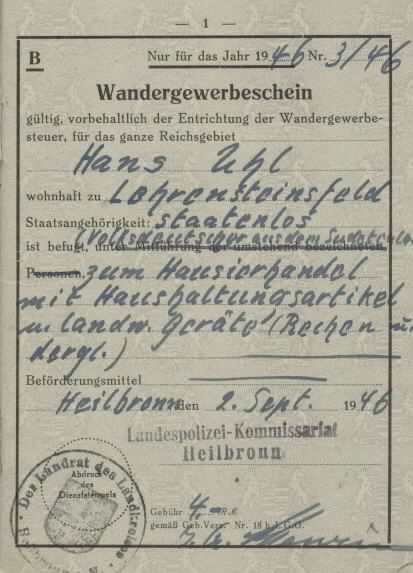 — 1 —
B Nur für das Jahr 1946 Nr. 3/46
Wandergewerbeschein
gültig, vorbehaltlich der Entrichtung der Wandergewerbe-
steuer, für das ganze Reichsgebiet
Hans Uhl
wohnhaft zu Lehrensteinsfeld
Staatsangehörigkeit: staatenlos
Volksdeutscher aus dem Sudetenland
ist befugt, unter Mitführung der umstehend bezeichneten
Personen, zum Hausierhandel
mit Haushaltungsartikel
u. landw. Geräte (Rechen und
dergl.)
Beförderungsmittel
Heilbronn, den 2. Sept. 1946
Landespolizei-Kommissariat
Heilbronn
Der Landrat des Landkreises
Abdruck
des
Dienststempels
Gebühr 4.- RM
gemäß Geb.Verz. Nr. 18 b J.G.O.